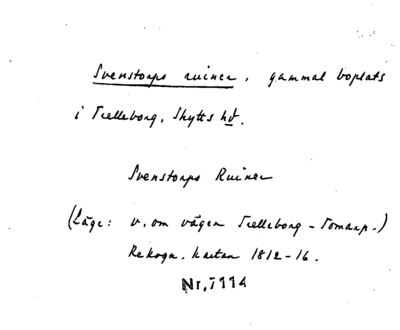 Svenstorps ruiner, gammal boplats
i Trelleborg, Skytts hd.
Svenstorps Ruiner
(Läge: v. om vägen Trelleborg - Tomarp.)
Rekogn. kartan 1812-16.
Nr, 7114